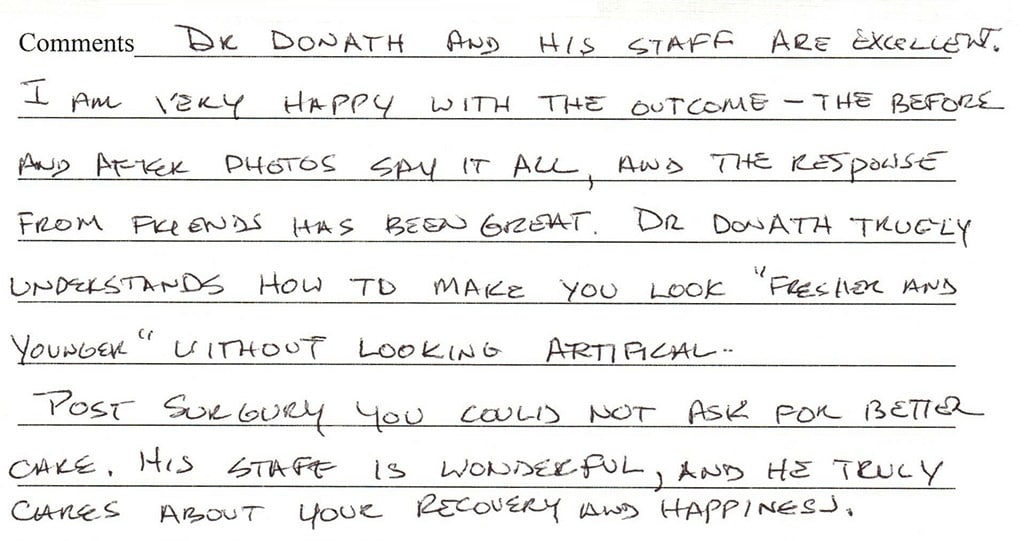 Comments DR DONATH AND HIS STAFF ARE EXCELLENT.
I AM VERY HAPPY WITH THE OUTCOME - THE BEFORE
AND AFTER PHOTOS SAY IT ALL, AND THE RESPONSE
FROM FRIENDS HAS BEEN GREAT. DR DONATH TRUELY
UNDERSTANDS HOW TO MAKE YOU LOOK "FRESHER AND
YOUNGER" WITHOUT LOOKING ARTIFICAL..
POST SURGURY YOU COULD NOT ASK FOR BETTER
CARE. HIS STAFF IS WONDERFUL, AND HE TRULY
CARES ABOUT YOUR RECOVERY AND HAPPINESS.